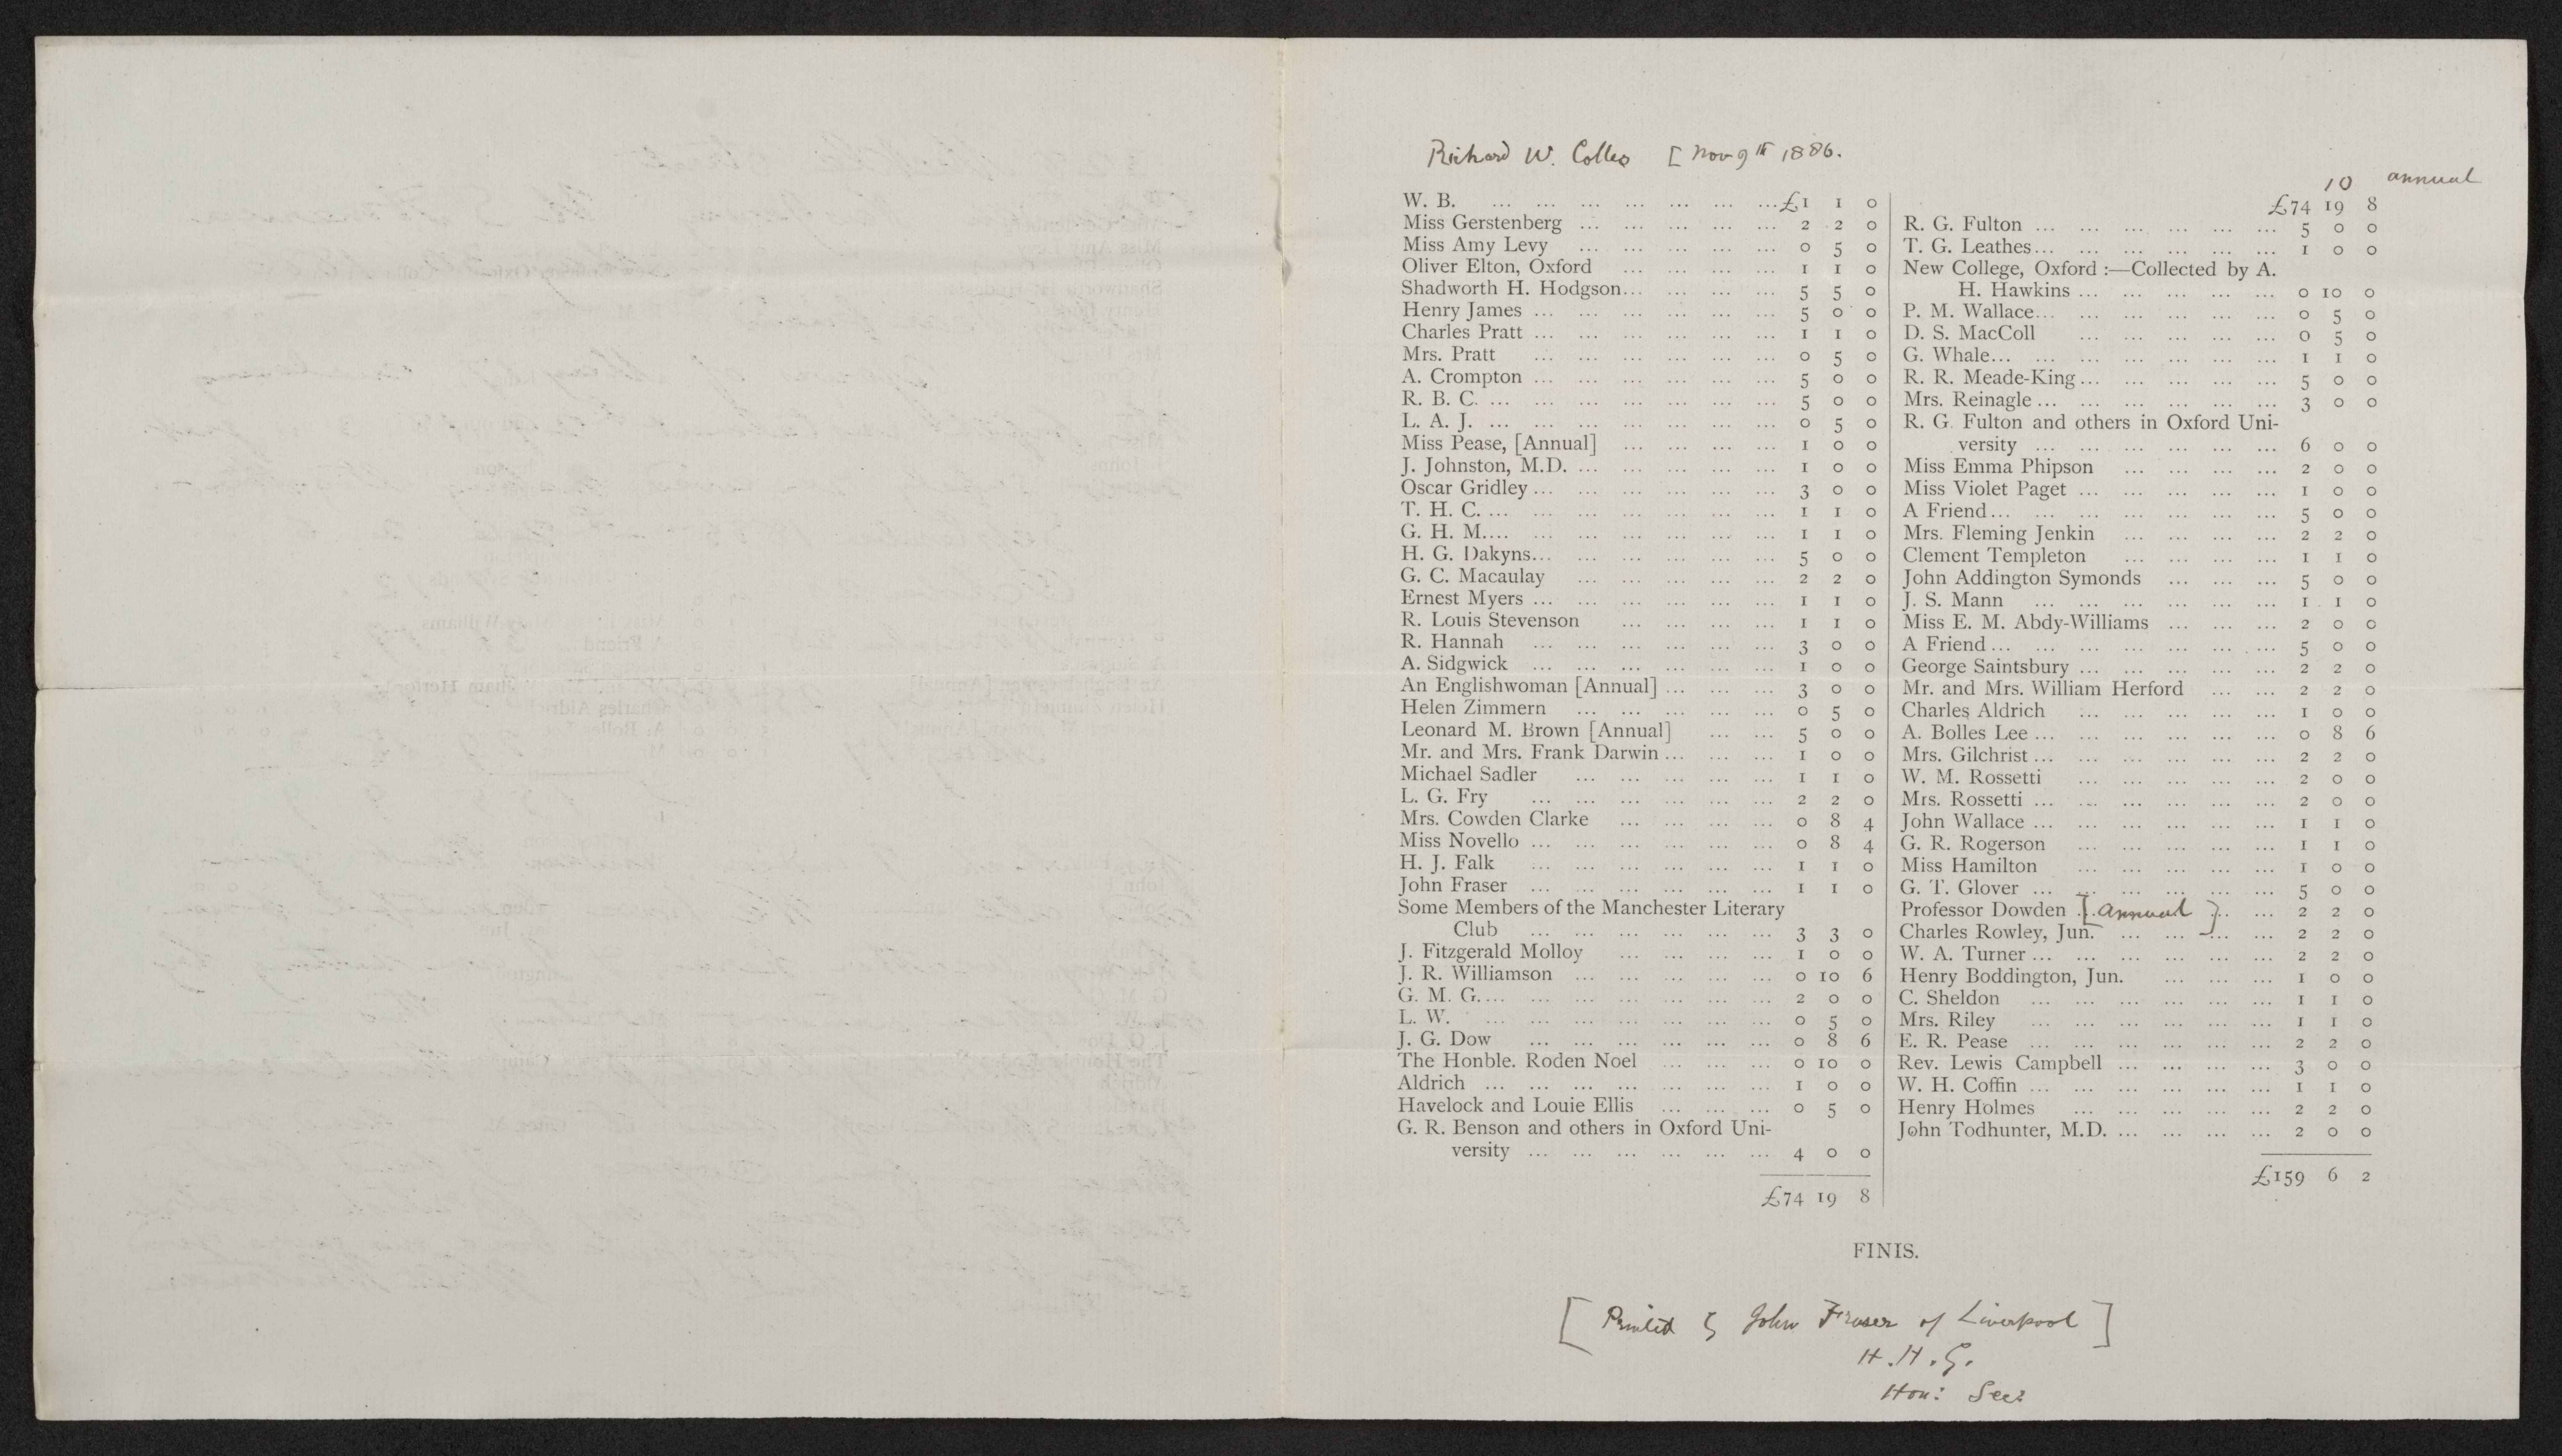 Richard W. Colles [Nov 9th 1886.
10 annual
W. B. ... ... ... ... ... ... ... £1 1 0
Miss Gerstenberg ... ... ... ... ... 2 2 0
Miss Amy Levy ... ... ... ... ... 0 5 0
Oliver Elton, Oxford ... ... ... ... 1 1 0
Shadworth H. Hodgson... ... ... ... 5 5 0
Henry James ... ... ... ... ... ... 5 0 0
Charles Pratt ... ... ... ... ... ... 1 1 0
Mrs. Pratt ... ... ... ... ... ... 0 5 0
A. Crompton ... ... ... ... ... ... 5 0 0
R. B. C. ... ... ... ... ... ... ... 5 0 0
L. A. J. ... ... ... ... ... ... ... 0 5 0
Miss Pease, [Annual] ... ... ... ... 1 0 0
J. Johnston, M.D. ... ... ... ... ... 1 0 0
Oscar Gridley ... ... ... ... ... ... 3 0 0
T. H. C. ... ... ... ... ... ... ... 1 1 0
G. H. M.... ... ... ... ... ... ... 1 1 0
H. G. Dakyns... ... ... ... ... ... 5 0 0
G. C. Macaulay ... ... ... ... ... 2 2 0
Ernest Myers ... ... ... ... ... ... 1 1 0
R. Louis Stevenson ... ... ... ... 1 1 0
R. Hannah ... ... ... ... ... ... 3 0 0
A. Sidgwick ... ... ... ... ... ... 1 0 0
An Englishwoman [Annual] ... ... ... 3 0 0
Helen Zimmern ... ... ... ... ... 0 5 0
Leonard M. Brown [Annual] ... ... 5 0 0
Mr. and Mrs. Frank Darwin ... ... ... 1 0 0
Michael Sadler ... ... ... ... ... 1 1 0
L. G. Fry ... ... ... ... ... ... 2 2 0
Mrs. Cowden Clarke ... ... ... ... 0 8 4
Miss Novello ... ... ... ... ... ... 0 8 4
H. J. Falk ... ... ... ... ... ... 1 1 0
John Fraser ... ... ... ... ... ... 1 1 0
Some Members of the Manchester Literary
Club ... ... ... ... ... ... 3 3 0
J. Fitzgerald Molloy ... ... ... ... 1 0 0
J. R. Williamson ... ... ... ... ... 0 10 6
G. M. G.... ... ... ... ... ... ... 2 0 0
L. W. ... ... ... ... ... ... ... 0 5 0
J. G. Dow ... ... ... ... ... ... 0 8 6
The Honble. Roden Noel ... ... ... 0 10 0
Aldrich ... ... ... ... ... ... ... 1 0 0
Havelock and Louie Ellis ... ... ... 0 5 0
G. R. Benson and others in Oxford Uni-
versity ... ... ... ... ... ... 4 0 0
£74 19 8
£74 19 8
R. G. Fulton ... ... ... ... ... ... 5 0 0
T. G. Leathes... ... ... ... ... ... 1 0 0
New College, Oxford :—Collected by A.
H. Hawkins ... ... ... ... ... 0 10 0
P. M. Wallace... ... ... ... ... ... 0 5 0
D. S. MacColl ... ... ... ... ... 0 5 0
G. Whale... ... ... ... ... ... ... 1 1 0
R. R. Meade-King ... ... ... ... ... 5 0 0
Mrs. Reinagle ... ... ... ... ... ... 3 0 0
R. G. Fulton and others in Oxford Uni-
versity ... ... ... ... ... ... 6 0 0
Miss Emma Phipson ... ... ... ... 2 0 0
Miss Violet Paget ... ... ... ... ... 1 0 0
A Friend ... ... ... ... ... ... ... 5 0 0
Mrs. Fleming Jenkin ... ... ... ... 2 2 0
Clement Templeton ... ... ... ... 1 1 0
John Addington Symonds ... ... ... 5 0 0
J. S. Mann ... ... ... ... ... ... 1 1 0
Miss E. M. Abdy-Williams ... ... ... 2 0 0
A Friend ... ... ... ... ... ... ... 5 0 0
George Saintsbury ... ... ... ... ... 2 2 0
Mr. and Mrs. William Herford ... ... 2 2 0
Charles Aldrich ... ... ... ... ... 1 0 0
A. Bolles Lee ... ... ... ... ... ... 0 8 6
Mrs. Gilchrist ... ... ... ... ... ... 2 2 0
W. M. Rossetti ... ... ... ... ... 2 0 0
Mrs. Rossetti ... ... ... ... ... ... 2 0 0
John Wallace ... ... ... ... ... ... 1 1 0
G. R. Rogerson ... ... ... ... ... 1 1 0
Miss Hamilton ... ... ... ... ... 1 0 0
G. T. Glover ... ... ... ... ... ... 5 0 0
Professor Dowden [annual] ... 2 2 0
Charles Rowley, Jun. ... ... ... ... 2 2 0
W. A. Turner ... ... ... ... ... ... 2 2 0
Henry Boddington, Jun. ... ... ... 1 0 0
C. Sheldon ... ... ... ... ... ... 1 1 0
Mrs. Riley ... ... ... ... ... ... 1 1 0
E. R. Pease ... ... ... ... ... ... 2 2 0
Rev. Lewis Campbell ... ... ... ... 3 0 0
W. H. Coffin ... ... ... ... ... ... 1 1 0
Henry Holmes ... ... ... ... ... 2 2 0
John Todhunter, M.D. ... ... ... ... 2 0 0
£159 6 2
FINIS.
[Printed by John Fraser of Liverpool]
H. H. G.
Hon: Sec: